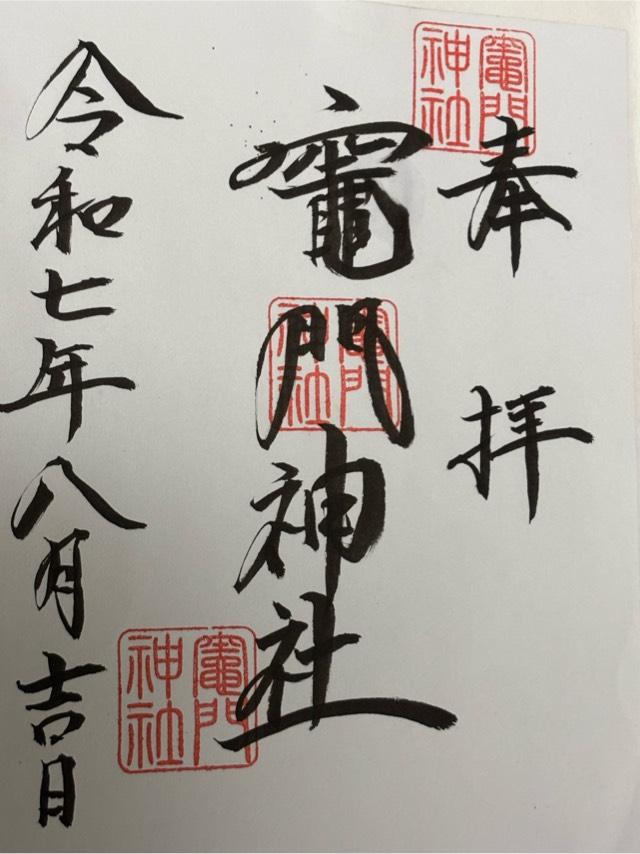 奉拝
竈門神社
令和七年八月吉日
竈門神社
竈門神社
竈門神社